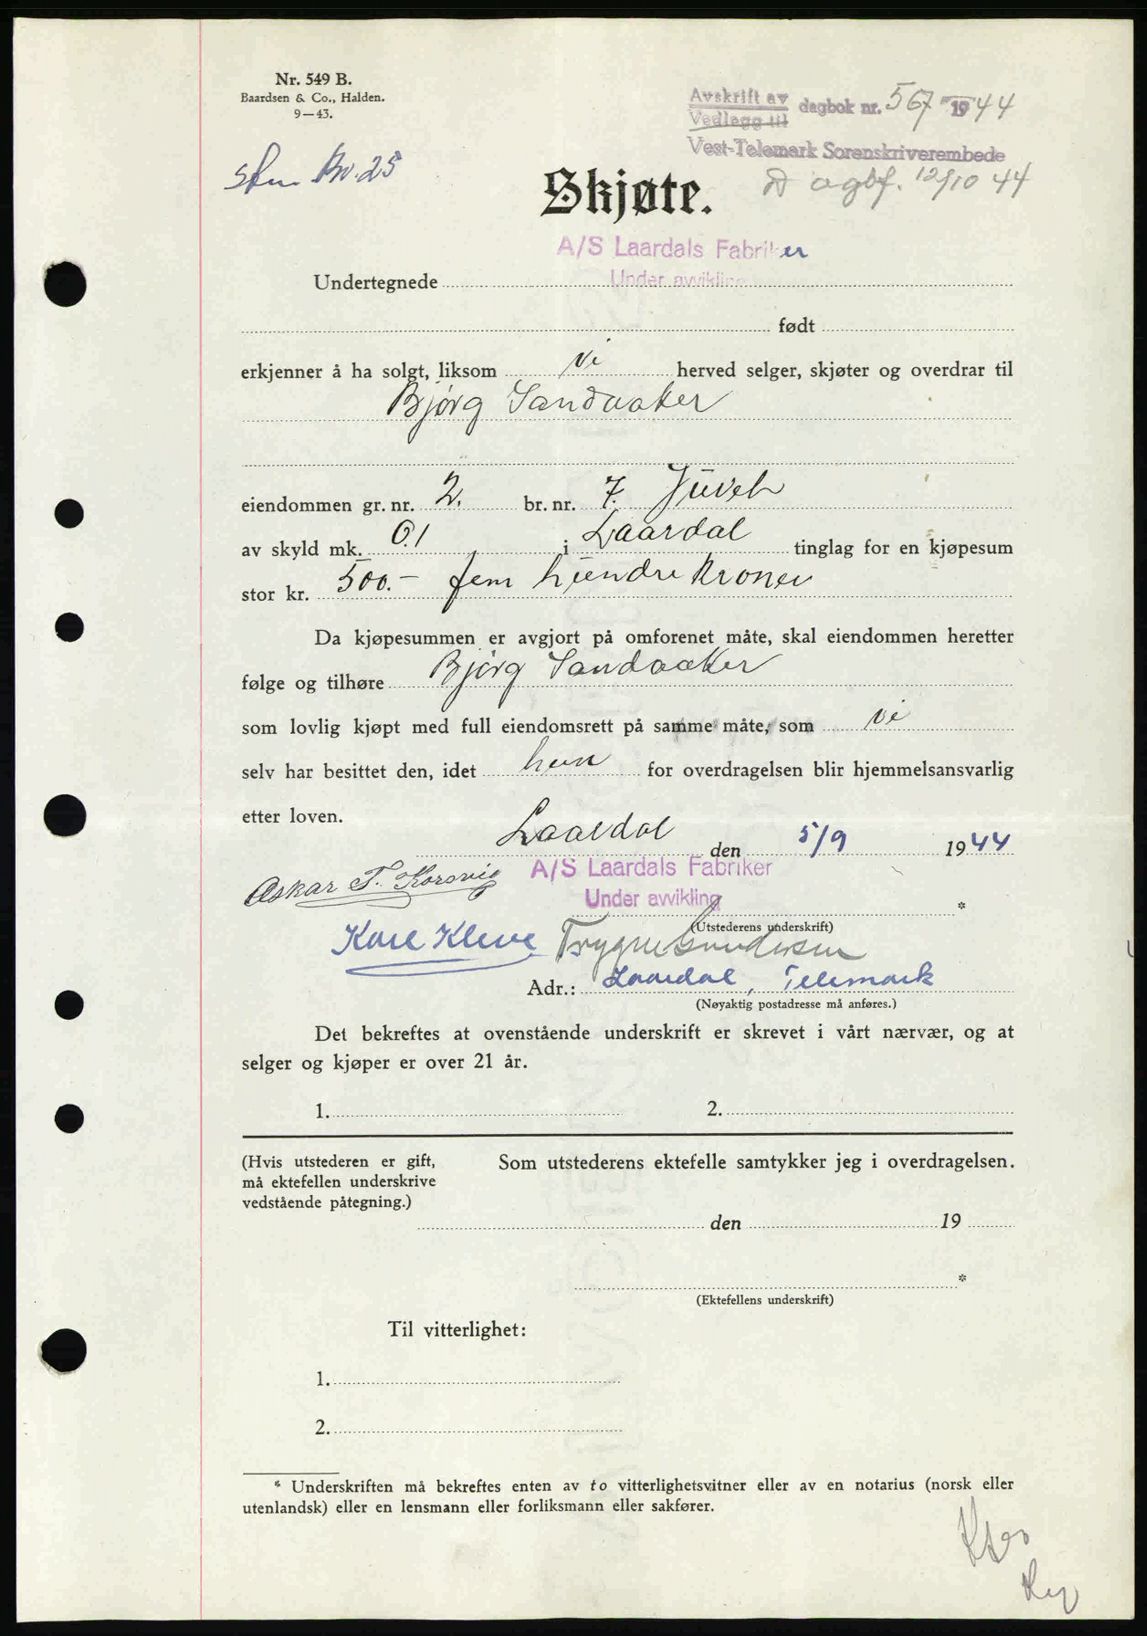 Nr. 549 B.
Baardsen & Co., Halden.
9—43.
Avskrift av
Vedlagg til
dagbok nr. 567 1944
Vest-Telemark Sorenskriverembede
Dagbf. 12/10 44
Skjøte.
A/S Laardals Fabriker
Undertegnede Under avvikling
født
erkjenner å ha solgt, liksom vi herved selger, skjøter og overdrar til
Bjørg Sandaaker
eiendommen gr. nr. 2. br. nr. 7. Juvet
av skyld mk. 0.1 i Laardal tinglag for en kjøpesum
stor kr. 500.- fem hundre kroner
Da kjøpesummen er avgjort på omforenet måte, skal eiendommen heretter
følge og tilhøre Bjørg Sandaaker
som lovlig kjøpt med full eiendomsrett på samme måte, som vi
selv har besittet den, idet hun for overdragelsen blir hjemmelsansvarlig
etter loven.
Laardal den 5/9 1944
A/S Laardals Fabriker
Askar T. Korsvig
Under avvikling
*
(Utstederens underskrift)
Kare Kleve Trygve Gundersen
Adr.: Laardal, Telemark
(Nøyaktig postadresse må anføres.)
Det bekreftes at ovenstående underskrift er skrevet i vårt nærvær, og at
selger og kjøper er over 21 år.
1. 2.
(Hvis utstederen er gift,
må ektefellen underskrive
vedstående påtegning.)
Som utstederens ektefelle samtykker jeg i overdragelsen.
den 19
*
(Ektefellens underskrift)
Til vitterlighet:
1.
2.
* Underskriften må bekreftes enten av to vitterlighetsvitner eller av en notarius (norsk eller
utenlandsk) eller en lensmann eller forliksmann eller sakfører.